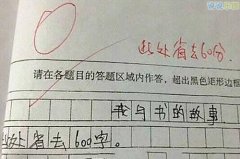 此处省去60分.
请在各题目的答题区域内作答，超出黑色矩形边框
我与书的故事
此处省去1600字。